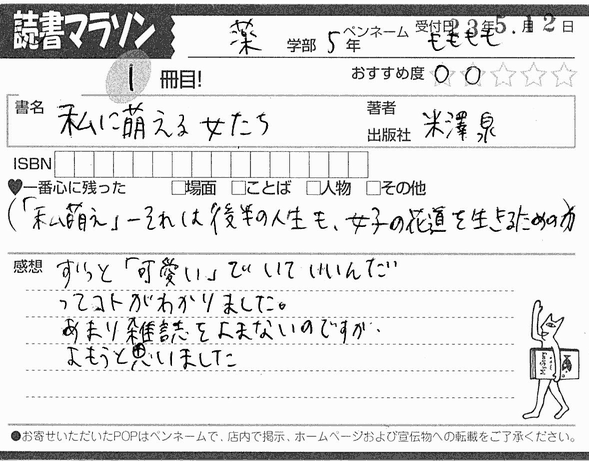 読書マラソン
薬 学部 5年 ペンネーム もももも 受付日 23年5.月12日
1 冊目! おすすめ度 ○○☆☆☆
書名 私に萌える女たち 著者 出版社 米澤泉
ISBN
♥一番心に残った □場面 □ことば □人物 □その他
(「私萌え」ーそれは後半の人生も、女子の花道を生きるための
感想 ずっと「可愛い」でいていいんだ
ってコトがわかりました。
あまり雑誌をよまないのですが、
よもうと思いました
●お寄せいただいたPOPはペンネームで、店内で掲示、ホームページおよび宣伝物への転載をご了承ください。